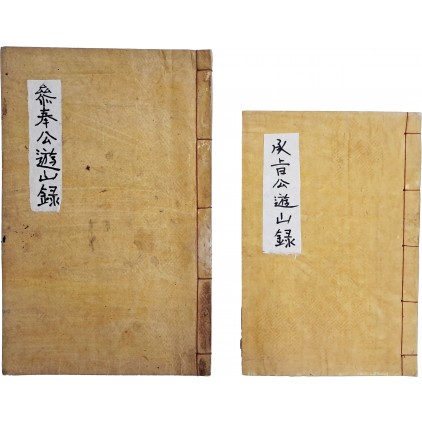 叅奉公遊山録
承旨公遊山録